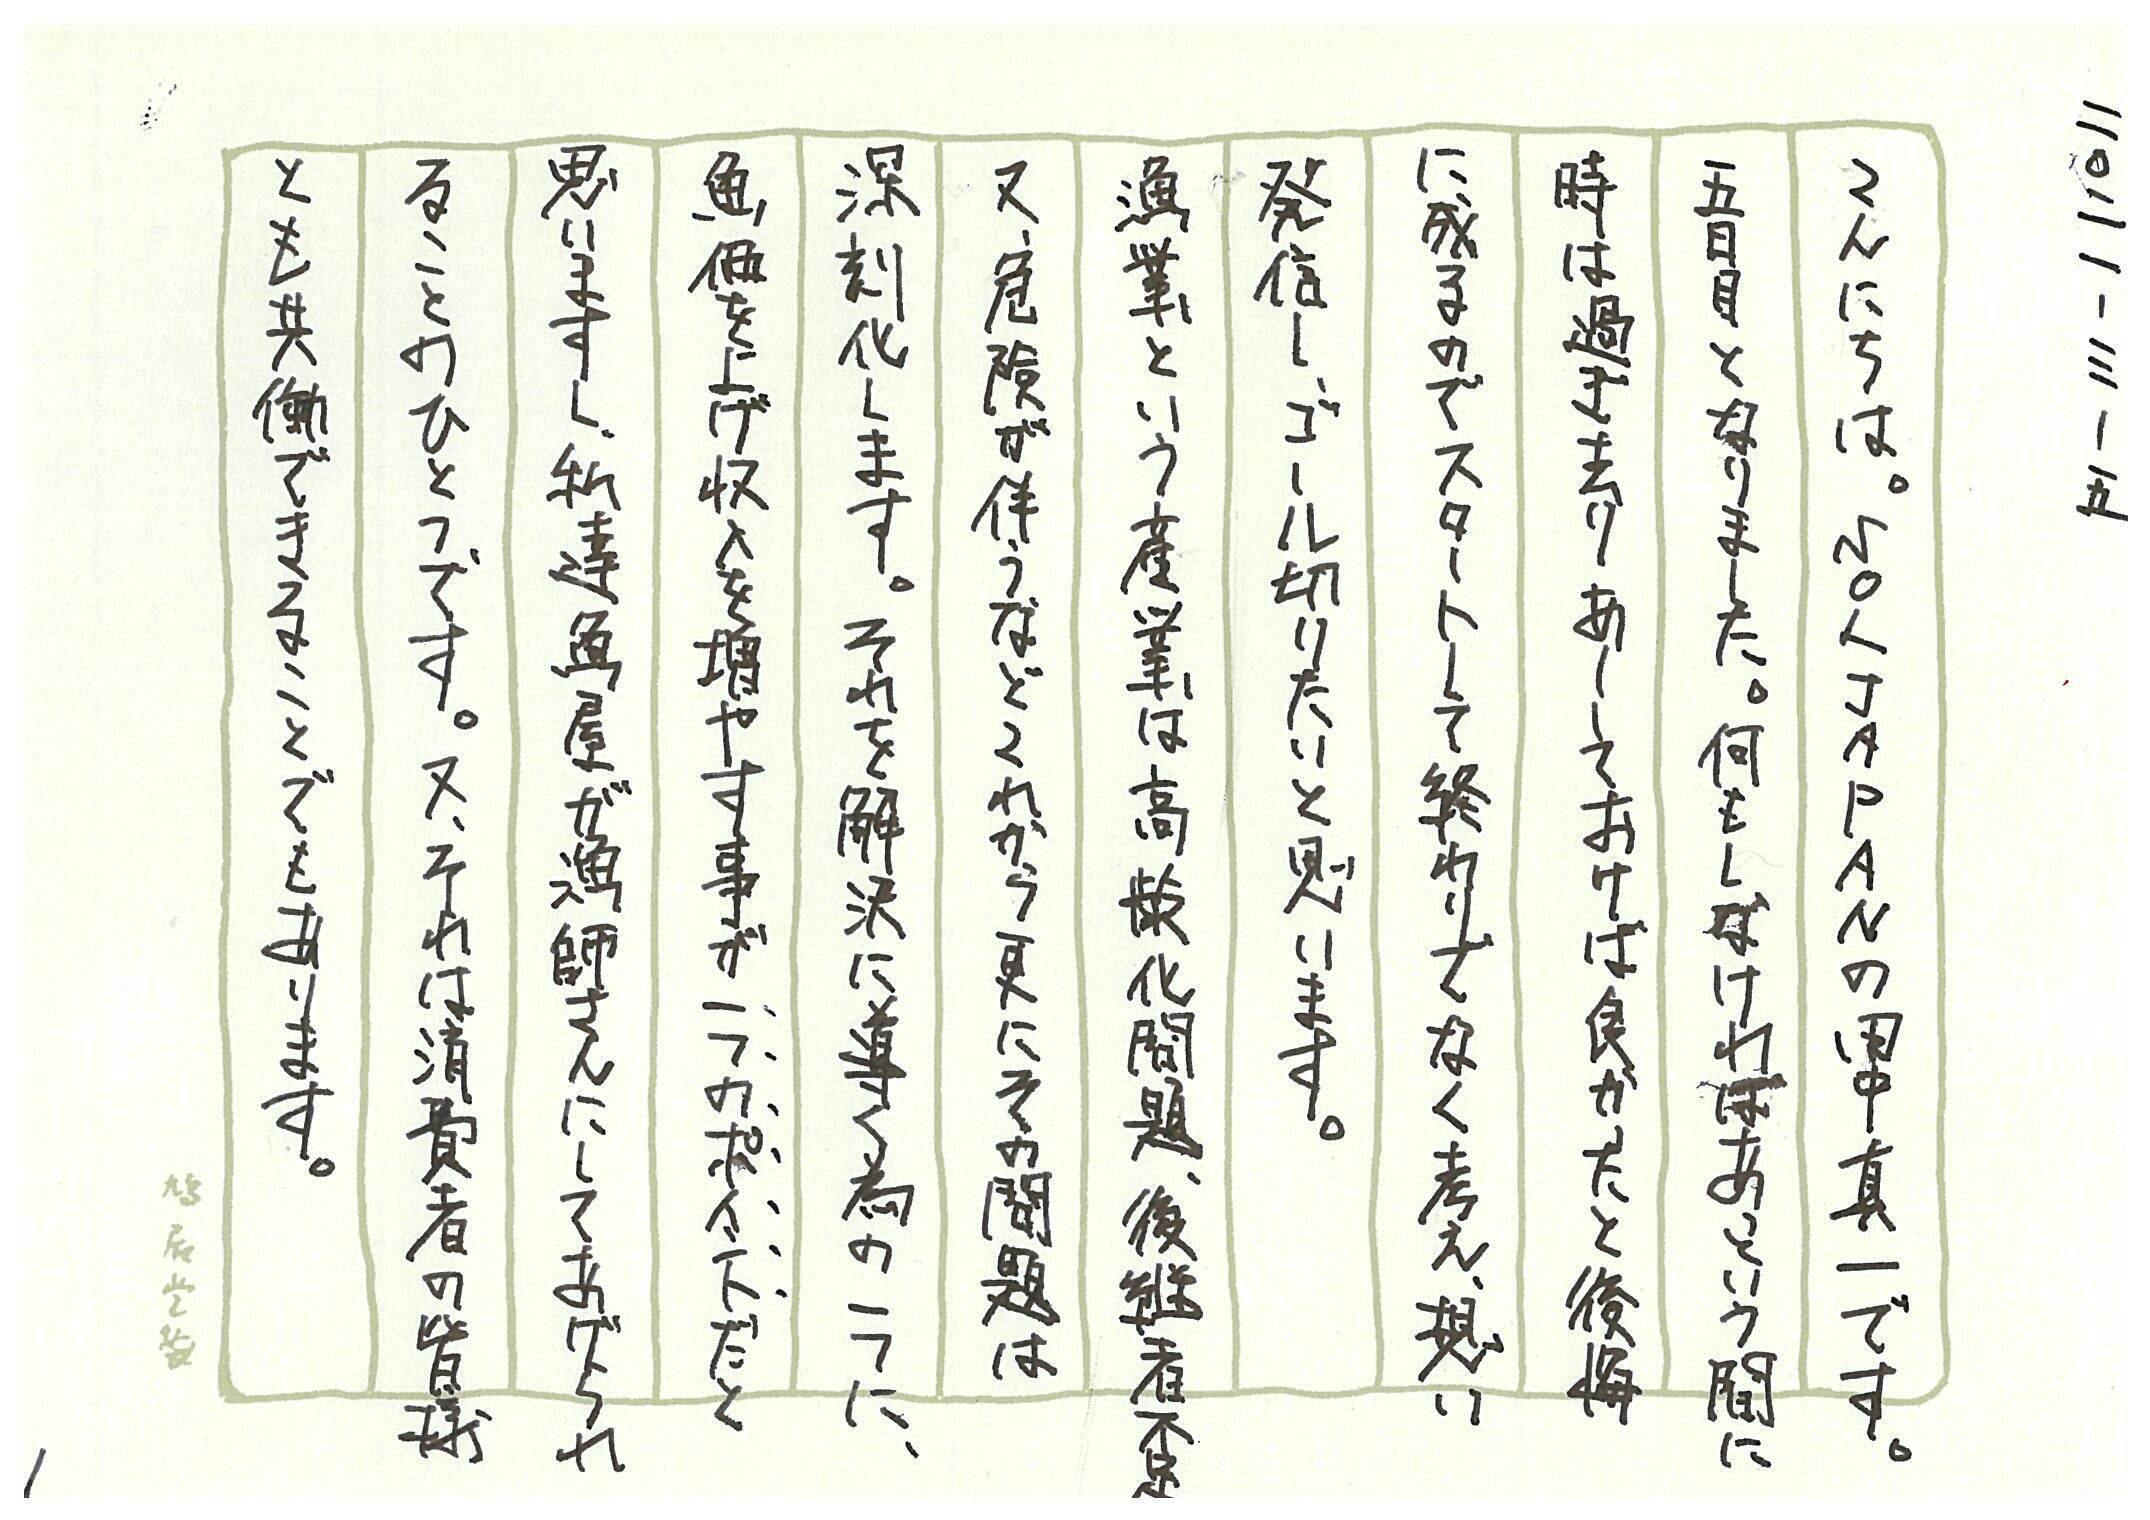 二〇二一-三-五
こんにちは。５０人JAPANの田中真一です。
五日目となりました。何もしなければあっという間に
時は過ぎ去りあーしておけば良かったと後悔
に成るのでスタートして終わりでなく考え、想い
発信し、ゴール切りたいと思います。
漁業という産業は高齢化問題、後継者不足
又、危険が伴うなどこれから更にその問題は
深刻化します。それを解決に導く為の一つに、
魚価を上げ収入を増やす事が一つのポイントだと
思いますし、私達魚屋が漁師さんにしてあげられ
ることのひとつです。又、それは消費者の皆様
とも共働できることでもあります。
鳩居堂製
1